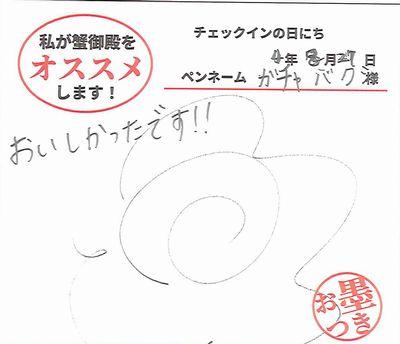 私が蟹御殿を
オススメ
します！
チェックインの日にち
4年8月27日
ペンネーム ガチャバグ様
おいしかったです!!
お墨
つき